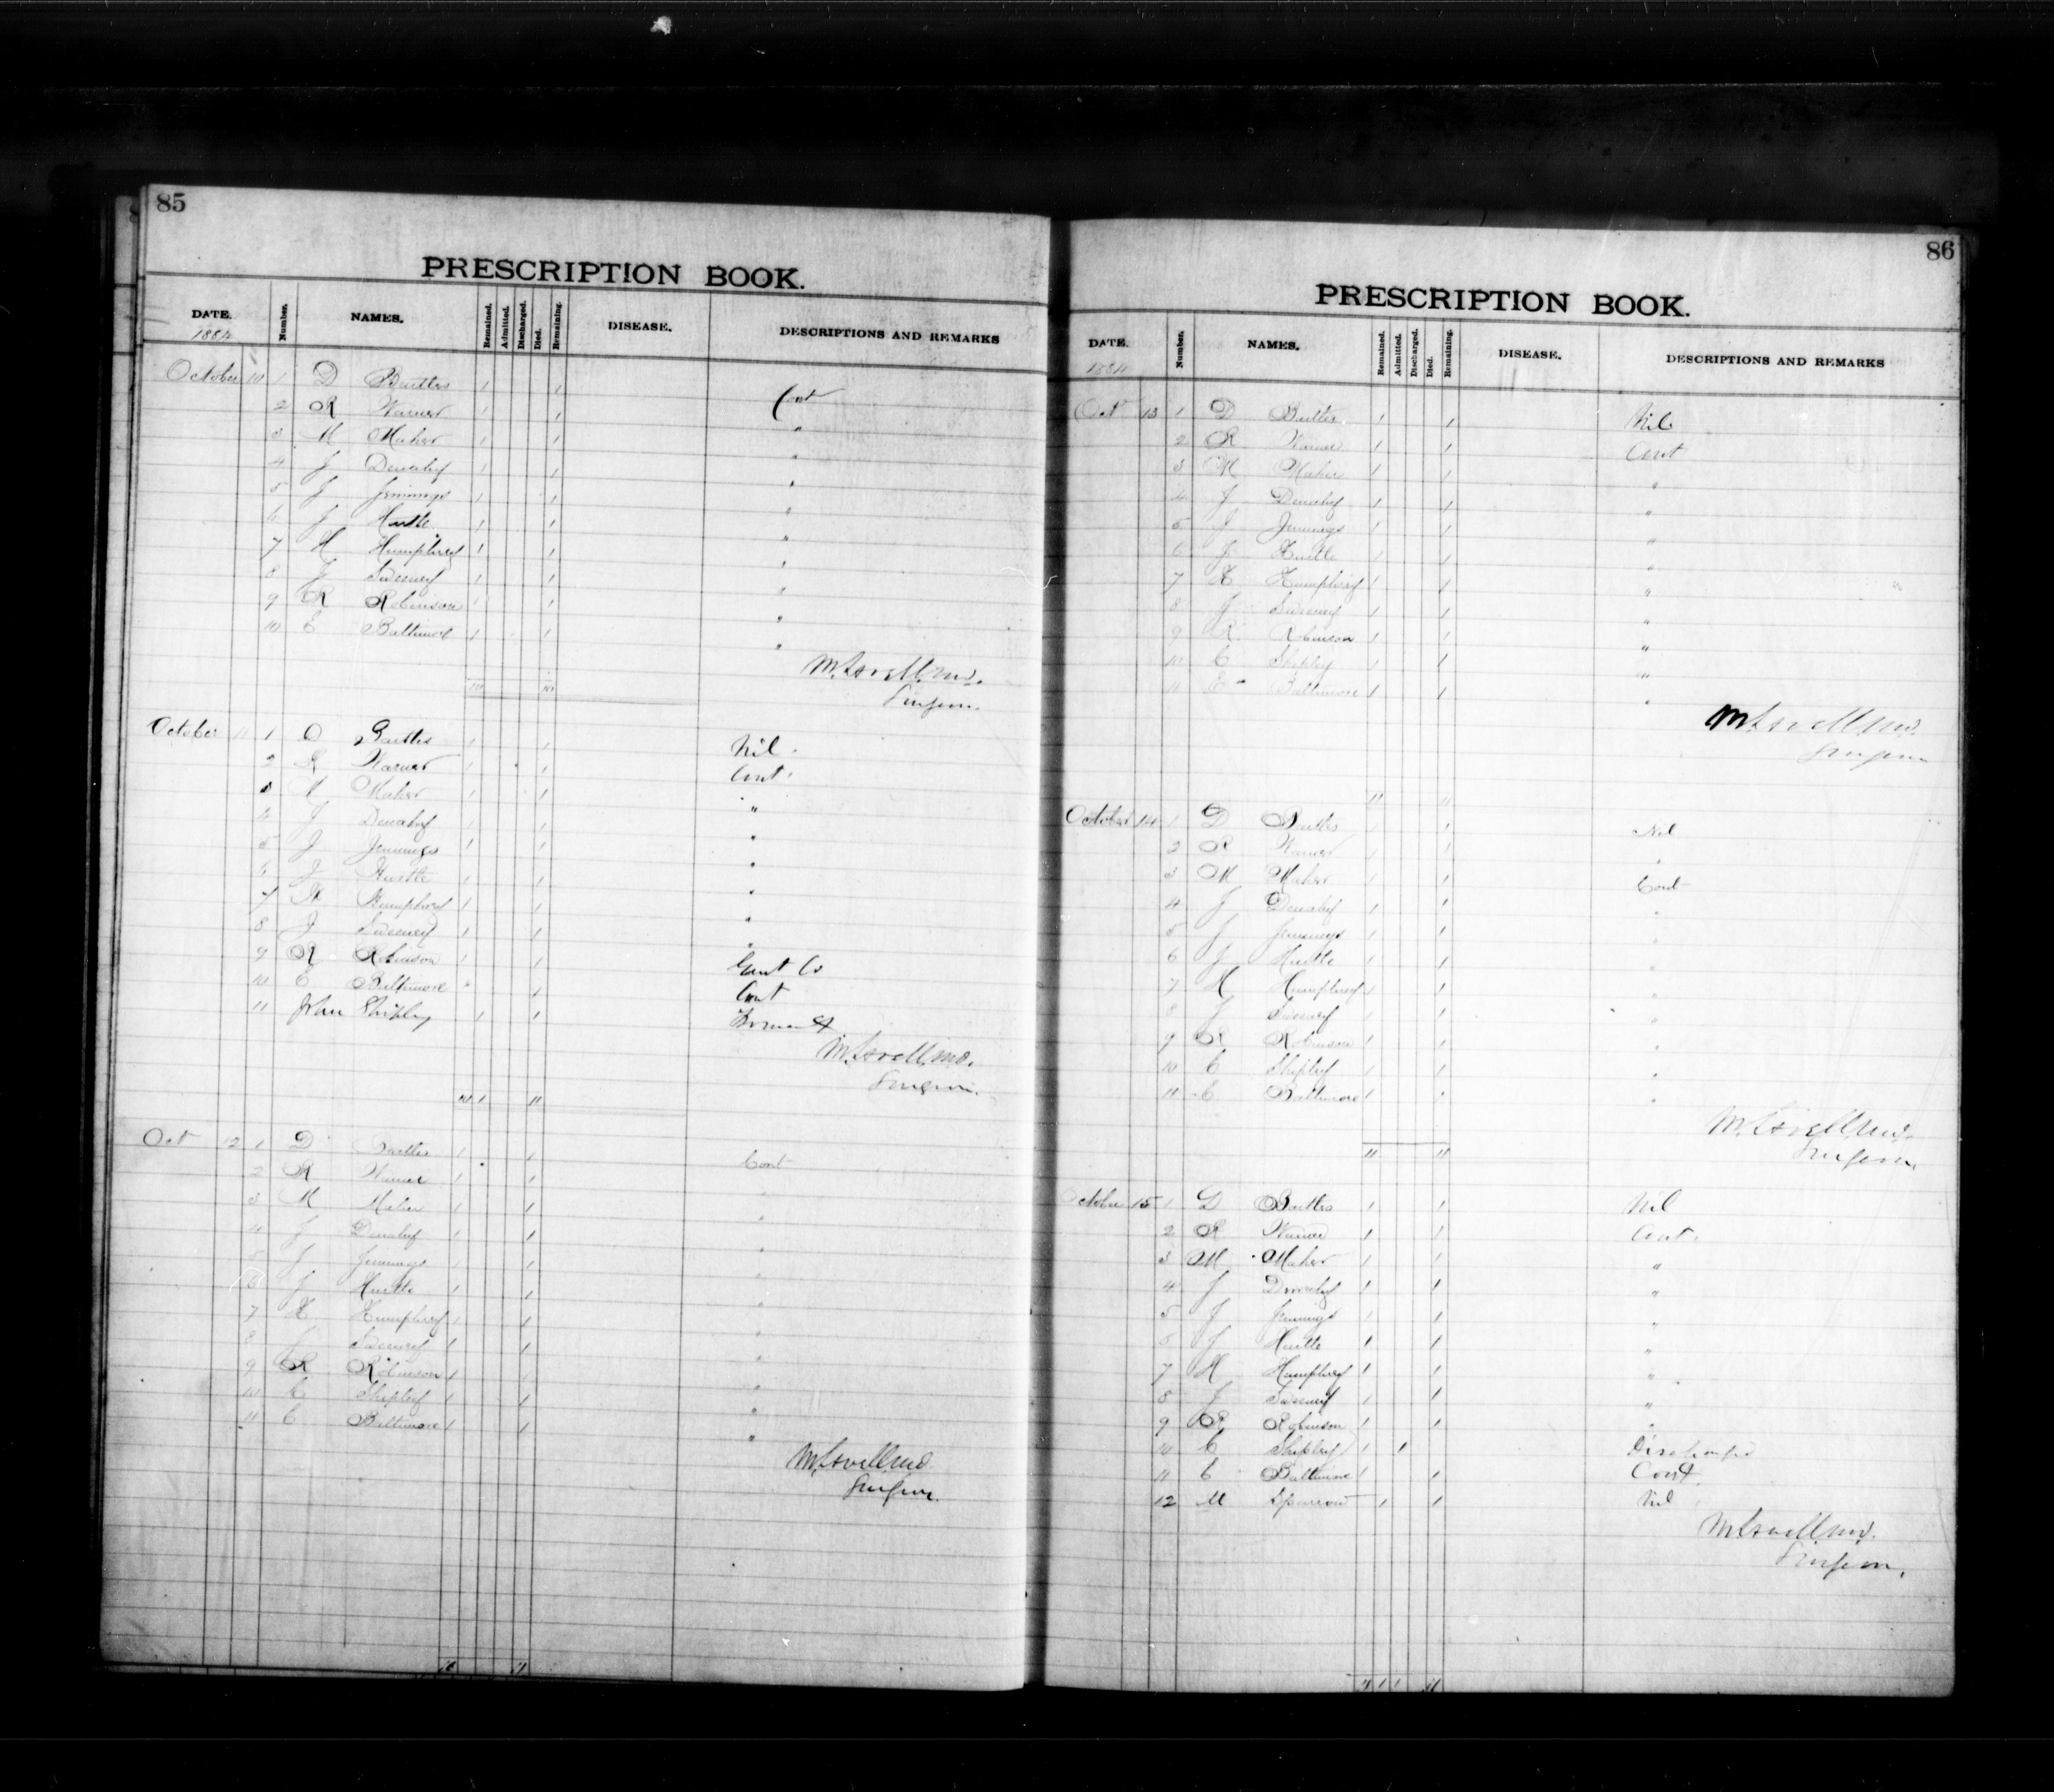 85
PRESCRIPTION BOOK.
DATE. Number. NAMES. Remained. Admitted. Discharged. Died. Remaining. DISEASE. DESCRIPTIONS AND REMARKS
1884
October 10 1 D Buttes 1 1 Cont
2 R Warner 1 1 "
3 M Maher 1 1 "
4 J Denahy 1 1 "
5 J Jennings 1 1 "
6 J Hustle 1 1 "
7 H Humphrey 1 1 "
8 J Sweeney 1 1 "
9 R Robinson 1 1 "
10 E Baltimore 1 1 "
M. Lovell M.D.
10 10 Surgeon.
October 11 1 D Buttes 1 1 Nil
2 R Warner 1 1 Cont.
3 M Maher 1 1 "
4 J Denahy 1 1 "
5 J Jennings 1 1 "
6 J Hustle 1 1 "
7 H Humphrey 1 1 "
8 J Sweeney 1 1 "
9 R Robinson 1 1
10 E Baltimore 1 Cont
11 John Shipley 1 1
M. Lovell M.D.
Surgeon.
10 1 11
Oct 12 1 D Buttes 1 1 Cont
2 R Warner 1 1 "
3 M Maher 1 1 "
4 J Denahy 1 1 "
5 J Jennings 1 1 "
6 J Hustle 1 1 "
7 H Humphrey 1 1 "
8 J Sweeney 1 1 "
9 R Robinson 1 1 "
10 C Shipley 1 1 "
11 E Baltimore 1 1 "
M. Lovell M.D.
Surgeon.
11
86
PRESCRIPTION BOOK.
DATE. Number. NAMES. Remained. Admitted. Discharged. Died. Remaining. DISEASE. DESCRIPTIONS AND REMARKS
1884
Oct 13 1 D Buttes 1 1 Nil
2 R Warner 1 1 Cont
3 M Maher 1 1 "
4 J Denahy 1 1 "
5 J Jennings 1 1 "
6 J Hustle 1 1 "
7 H Humphrey 1 1 "
8 J Sweeney 1 1 "
9 R Robinson 1 1 "
10 C Shipley 1 1 "
11 E Baltimore 1 1 "
M. Lovell M.D.
Surgeon
11 11
October 14 1 D Buttes 1 1 Nil
2 R Warner 1 1 "
3 M Maher 1 1 Cont
4 J Denahy 1 1 "
5 J Jennings 1 1 "
6 J Hustle 1 1 "
7 H Humphrey 1 1 "
8 J Sweeney 1 1 "
9 R Robinson 1 1 "
10 C Shipley 1 1 "
11 E Baltimore 1 1 "
M. Lovell M.D.
11 11 Surgeon.
October 15 1 D Buttes 1 1 Nil
2 R Warner 1 1 Cont.
3 M Maher 1 1 "
4 J Denahy 1 1 "
5 J Jennings 1 1 "
6 J Hustle 1 1 "
7 H Humphrey 1 1 "
8 J Sweeney 1 1 "
9 R Robinson 1 1 "
10 C Shipley 1 1 Discharged
11 E Baltimore 1 1 Cont.
12 M Sparrow 1 1 Nil
M. Lovell M.D.
Surgeon.
11 1 1 11